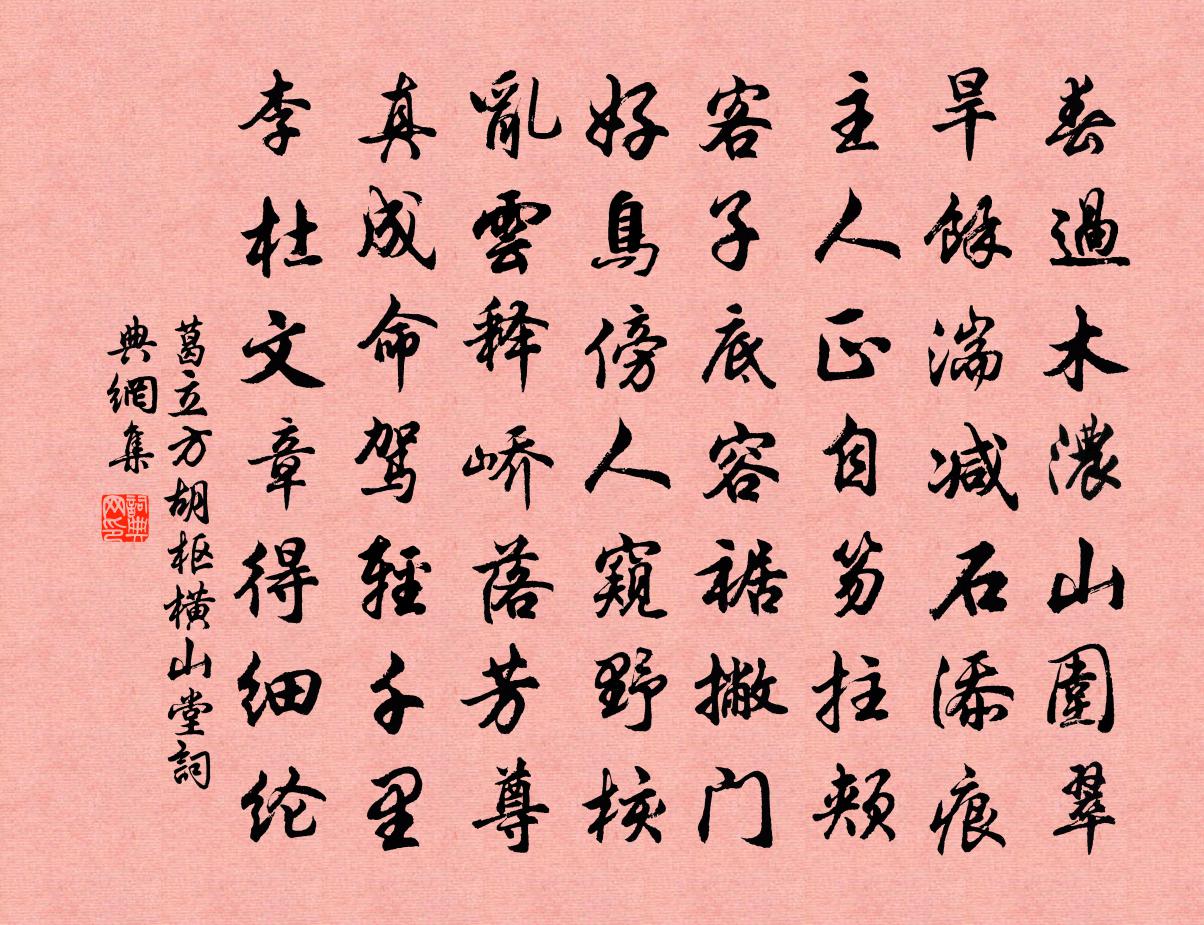 春過木濃山圍翠
旱餘湍减石添痕
主人正自笏拄頰
客子底容裾撇门
好鳥傍人窺野核
亂雲释峤落芳尊
真成命駕輕千里
李杜文章得细论
葛立方胡枢橫山堂詞
典網集
詞典网印